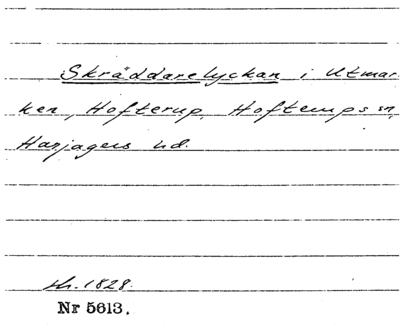 Skräddarelyckan i Utmar-
ken, Hofterup, Hofterups sn,
Harjagers hd.
th. 1828.
Nr 5613.